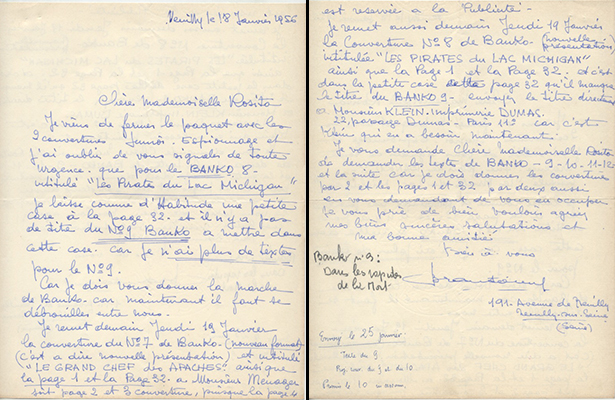 Neuilly le 18 Janvier 1956
Chère Mademoiselle Rosita
Je viens de fermer le paquet avec les
2 couvertures Espionnage et
j'ai oublié de vous signaler de toute
urgence. que pour le BANKO 8.
intitulé "les Pirates du Lac Michigan"
je laisse comme d'Habitude une petite
case à la page 32. et il n'y a pas
de titre du N°9 Banko a mettre dans
cette case. car je n'ais plus de textes
pour le N°9.
Car je dois vous donner la marche
de Banko. car maintenant il faut se
débrouiller entre nous.
Je remet demain Jeudi 19 Janvier
la couverture du N°7 de Banko. (nouveau format)
(c'est a dire nouvelle présentation) et intitulé
"LE GRAND CHEF des APACHES" ainsi que
la page 1 et la Page 32. a Monsieur Menager
soit page 2 et 3 couverture, puisque la page 4
est reservée a la Publicité -
Je remet aussi demain Jeudi 19 Janvier
la Couverture N°8 de Banko. (nouvelle
présentation)
intitulée "LES PIRATES du LAC MICHIGAN"
ainsi que la Page 1 et la Page 32. et c'est
dans la petite case cette page 32 qu'il manque
le titre du BANKO 9 - envoyer le titre directement
a Monsieur KLEIN. Imprimerie DUMAS.
22, passage Dumas. Paris (11e) car c'est
Klein qui en a besoin maintenant.
Je vous demande Chère Mademoiselle Rosita
de demander les textes de BANKO - 9 - 10 - 11 - 12
et la suite car je dois donner les couvertures
par 2 et les pages 1 et 32 par deux aussi
en vous demandant de vous en occuper
Je vous prie de bien vouloir agréer
mes bien sincères salutations et
ma bonne amitié
à vous
Banko n°9:
Dans les rapides
de la Mort
191. Avenue de Neuilly
Neuilly-sur-Seine
(Seine)
Envoyé le 25 janvier
Texte du 9
du 9 et du 10
le 10